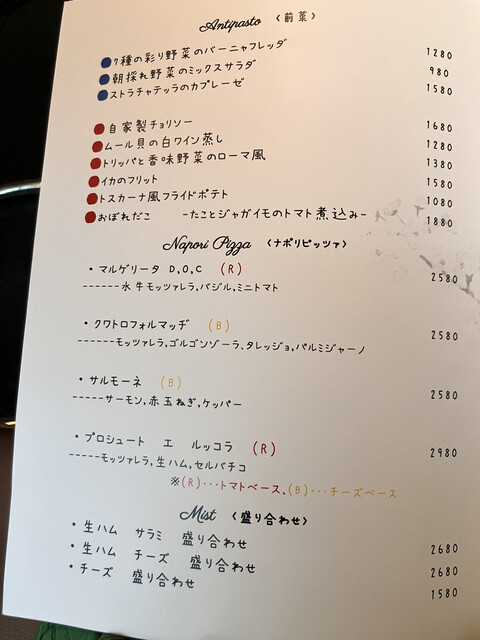 Antipasto 〈前菜〉
7種の彩り野菜のバーニャフレッダ 1280
朝採れ野菜のミックスサラダ 980
ストラチャテッラのカプレーゼ 1580
自家製チョリソー 1680
ムール貝の白ワイン蒸し 1280
トリッパと香味野菜のローマ風 1380
イカのフリット 1580
トスカーナ風フライドポテト 1080
おぼれだこ -たことジャガイモのトマト煮込み- 1880
Napori Pizza 〈ナポリピッツァ〉
・マルゲリータ D,O,C (R) 2580
------水牛モッツァレラ,バジル,ミニトマト
・クワトロフォルマッヂ (B) 2580
------モッツァレラ,ゴルゴンゾーラ,タレッジョ,パルミジャーノ
・サルモーネ (B) 2580
------サーモン,赤玉ねぎ,ケッパー
・プロシュート エ ルッコラ (R) 2980
-----モッツァレラ,生ハム,セルバチコ
※(R)・・・トマトベース、(B)・・・チーズベース
Mist 〈盛り合わせ〉
・生ハム サラミ 盛り合わせ 2680
・生ハム チーズ 盛り合わせ 2680
・チーズ 盛り合わせ 1580